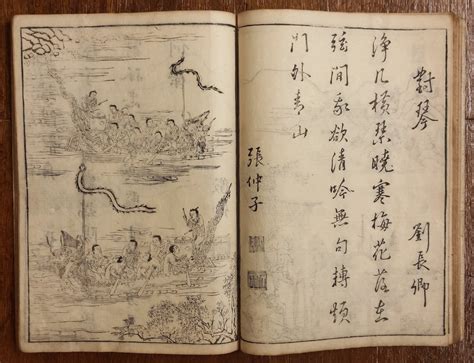 對琴
劉長卿
淨几橫琴曉寒梅花落在
弦間我欲清吟無句轉煩
門外青山
張仲子